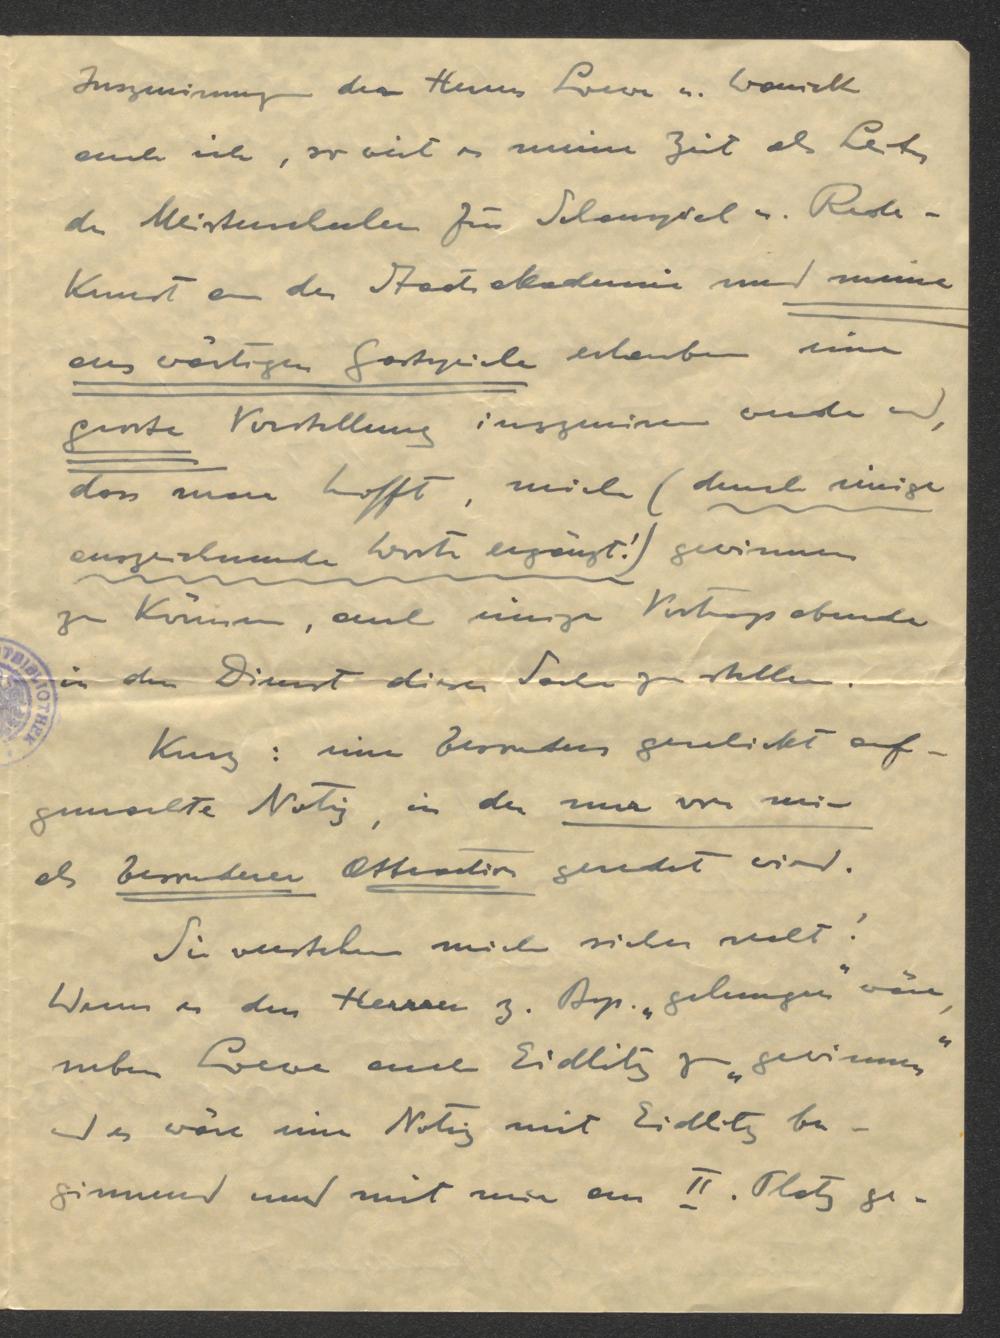 Inszenierung der Herren Loewe u. Wanick
auch ich, so weit es meine Zeit als Leiter
der Meisterschulen für Schauspiel u. Rede-
Kunst an der Staatsakademie und meine
auswärtigen Gastspiele erlauben eine
grosse Vorstellung inszenieren werde und,
dass man hofft, mich (durch einige
auszeichnende Worte ergänzt!) gewinnen
zu Können, auch einige Vortragsabende
in den Dienst dieser Sache zu stellen.
Kurz: eine besonders geschickt auf-
gemachte Notiz, in der nur von mir
als besonderer Attraction geredet wird.
Sie verstehen mich sicher recht!
Wenn es den Herren z. Bsp. „gelungen“ wäre,
neben Loewe auch Eidlitz zu „gewinnen“
und es wäre eine Notiz mit Eidlitz be-
ginnend und mit mir am II. Platz ge-